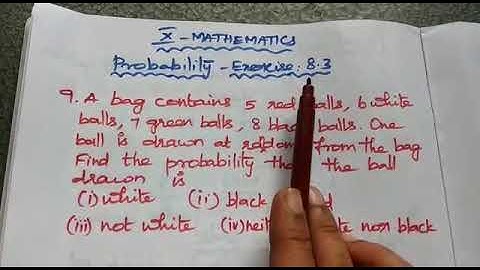 X - MATHEMATICS
Probability - Exercise: 8.3
9. A bag contains 5 red balls, 6 white
balls, 7 green balls, 8 black balls. One
ball is drawn at random from the bag
Find the probability that the ball
drawn is
(i) white (ii) black
(iii) not white (iv) nor black